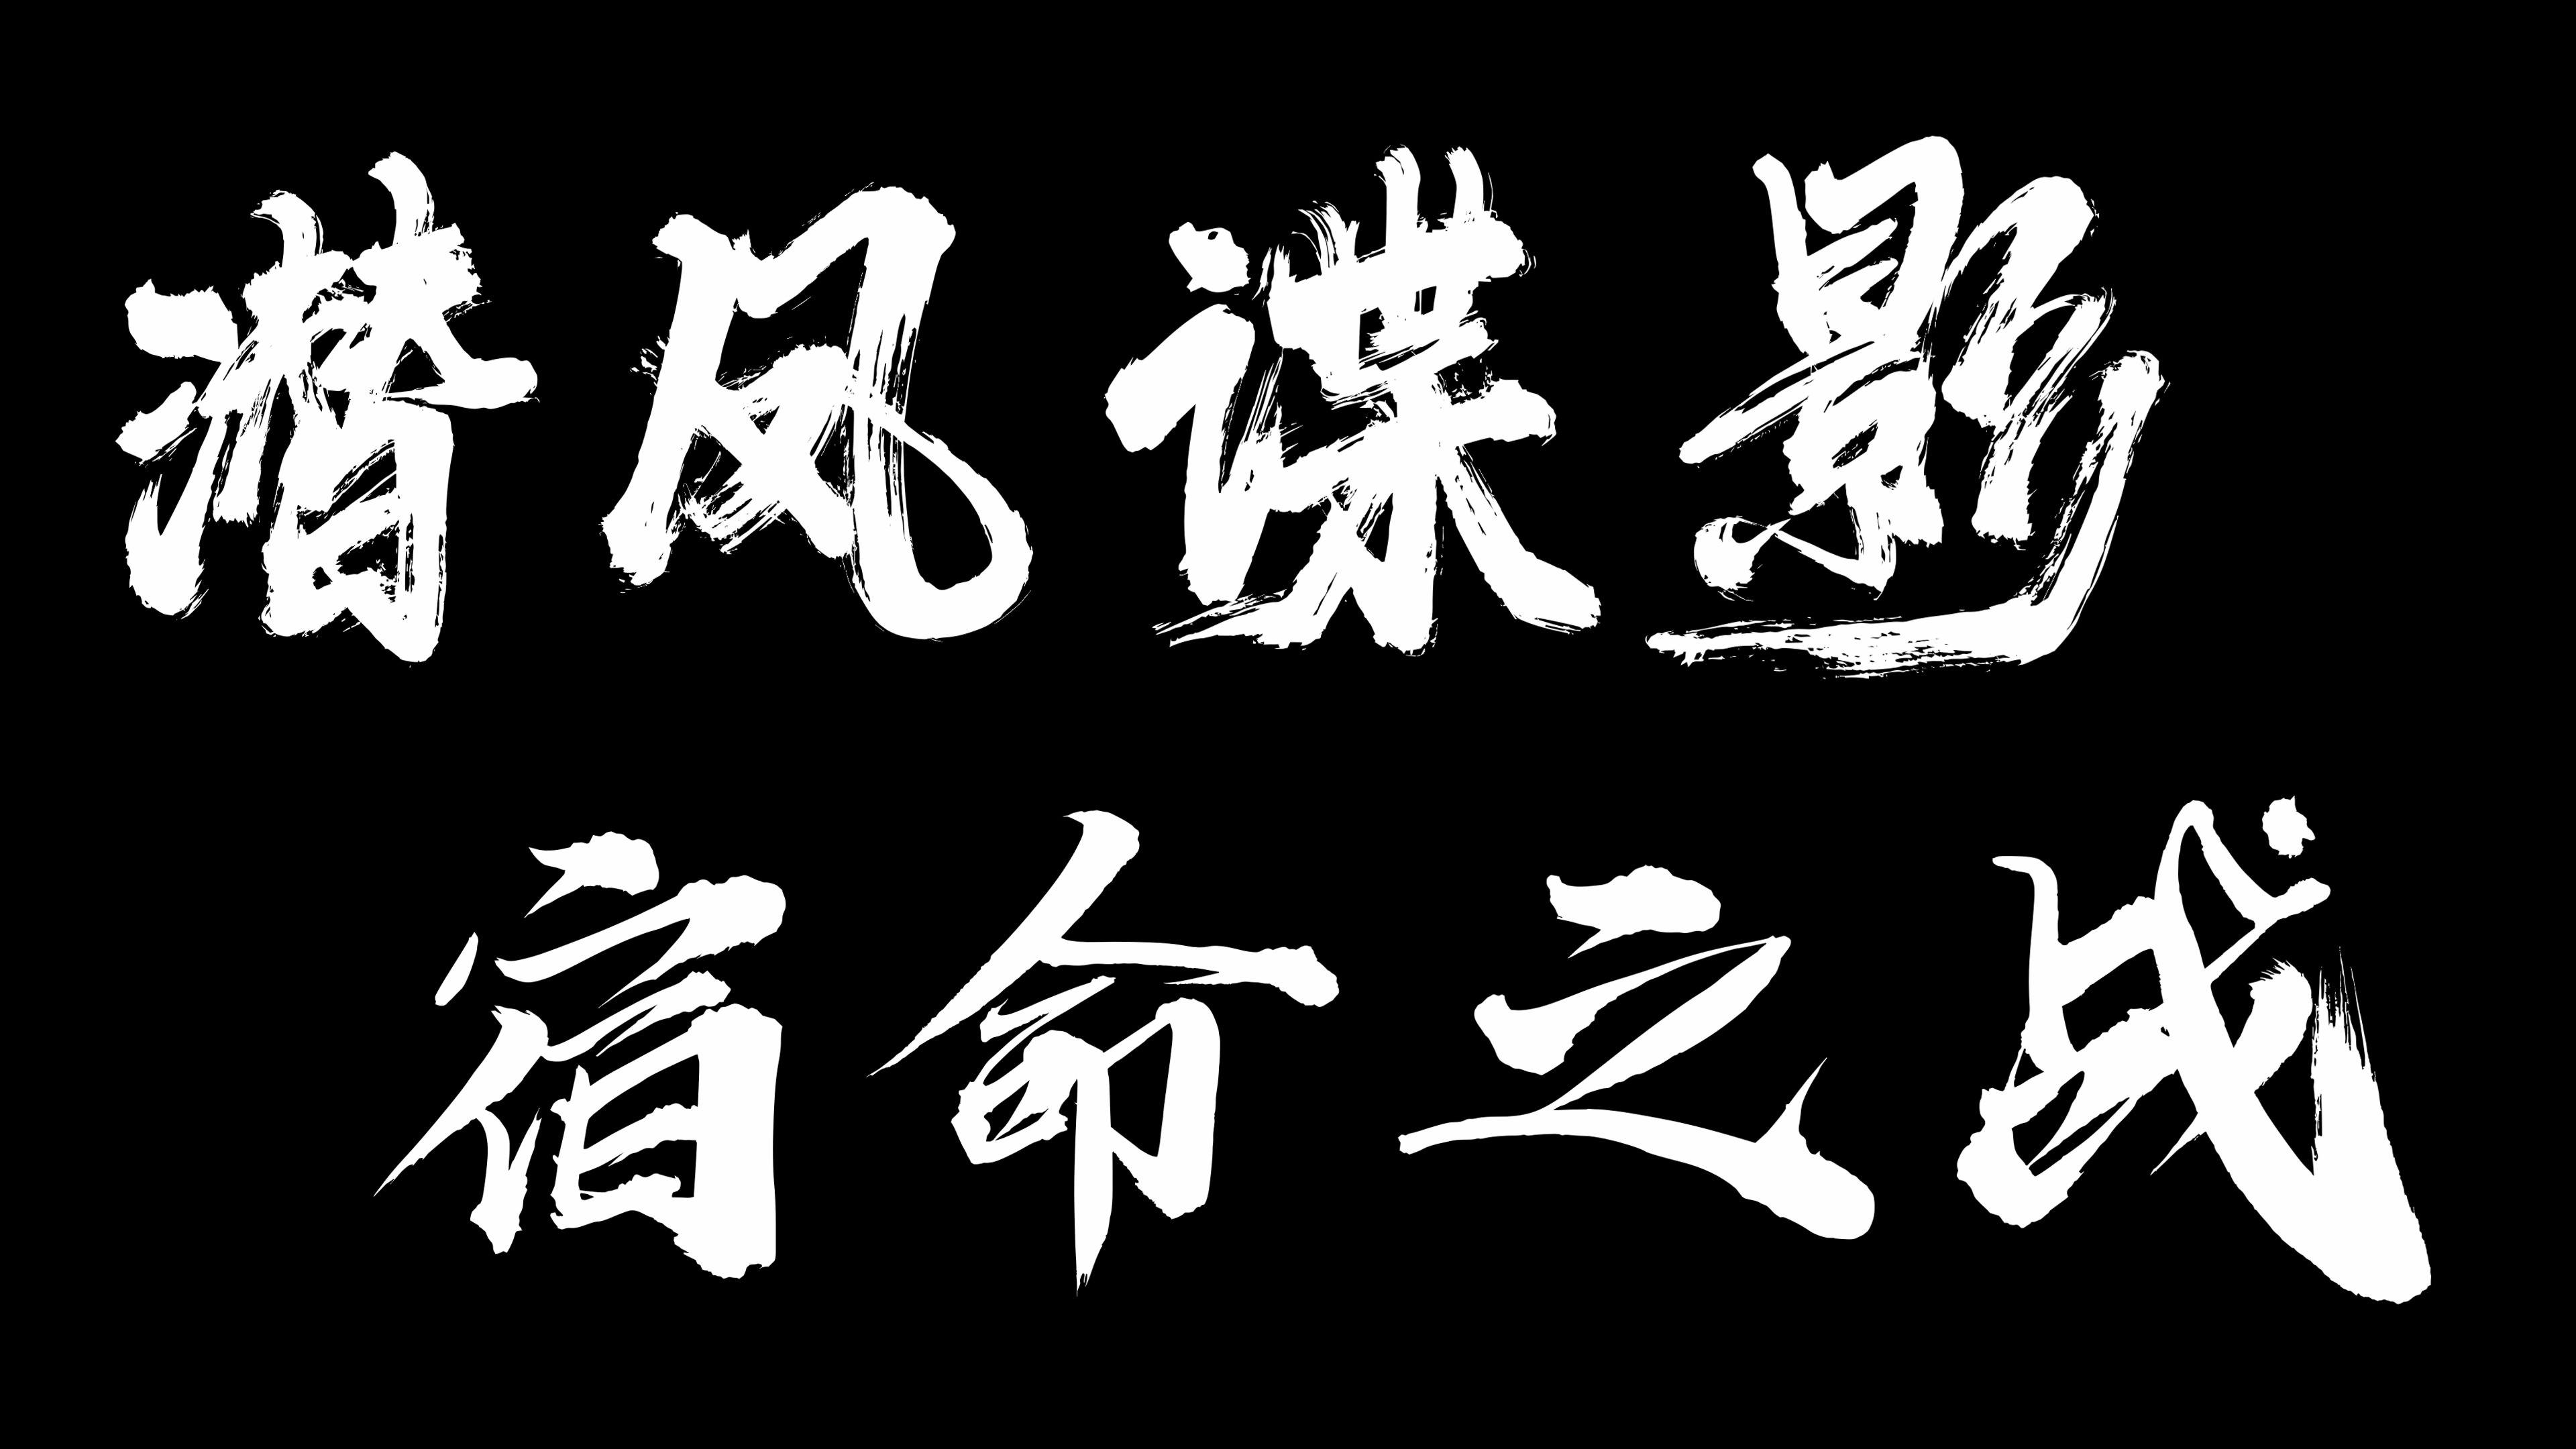 潜风谍影
宿命之战